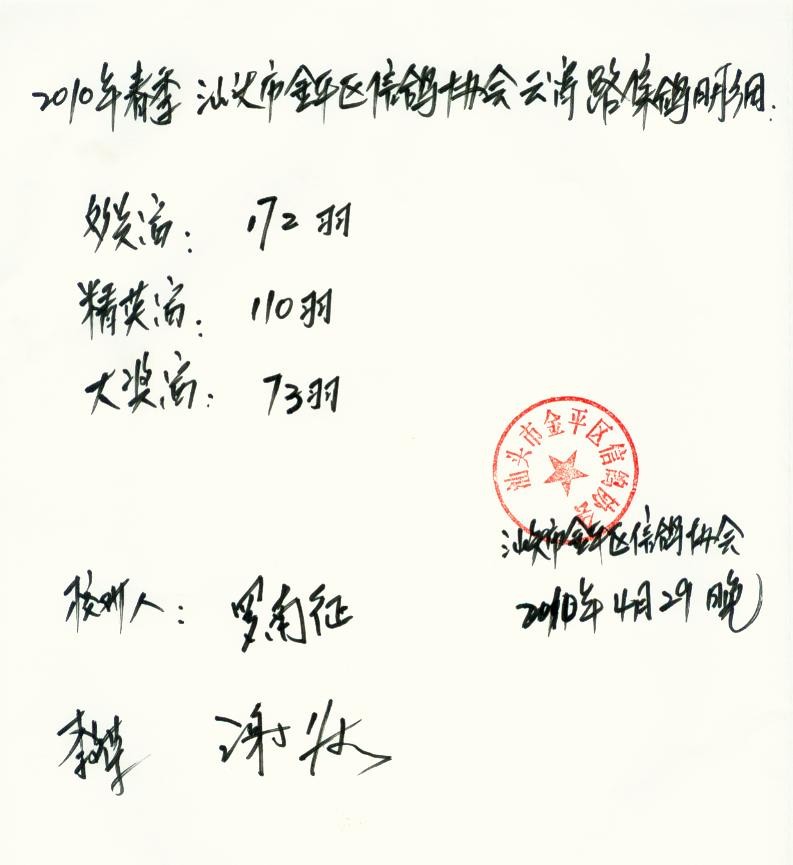 2010年春季 汕头市金平区信鸽协会云霄路集鸽明细:
172羽
精英宫: 110羽
大奖宫: 73羽
汕头市金平区信鸽协会
汕头市金平区信鸽协会
2010年4月29晚
核对人: 罗南征
李 谢